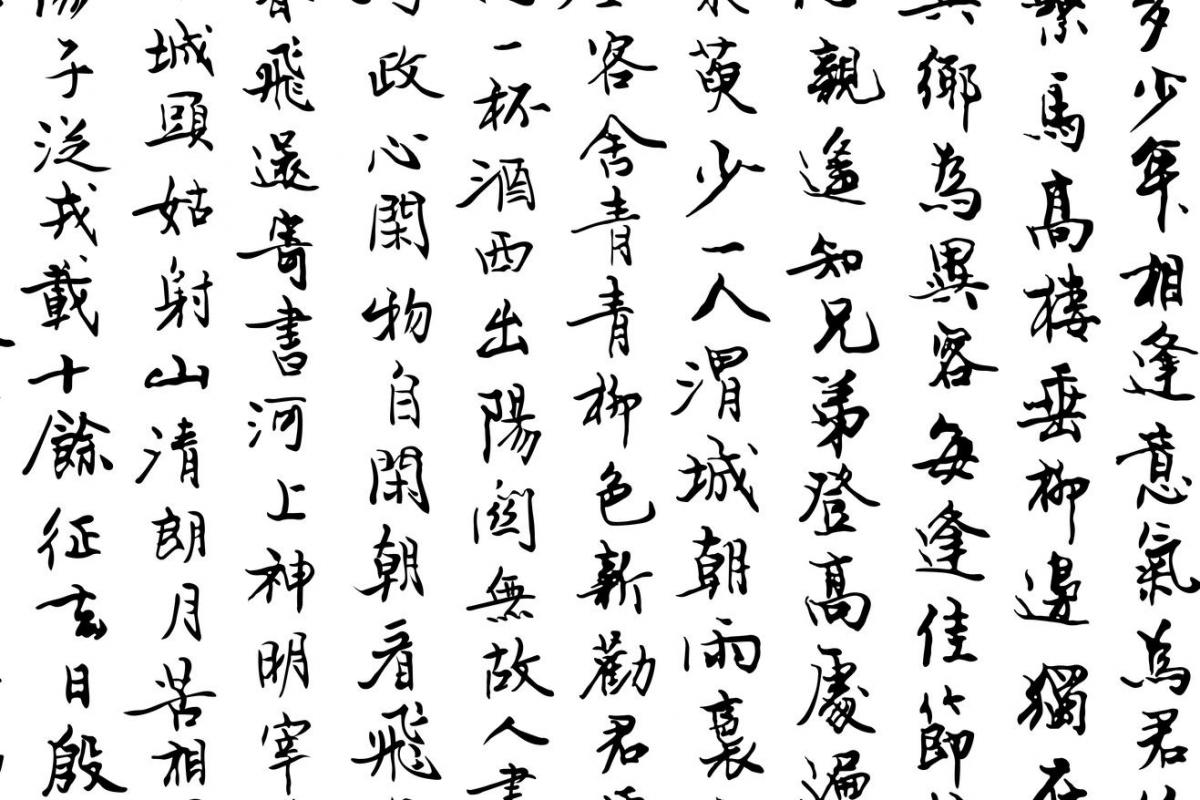 多少年相逢意氣為君
繫馬高樓垂柳邊獨在
異鄉為異客每逢佳節
親遥知兄弟登高處遍
萸少一人渭城朝雨裛
客舍青青柳色新勸君
一杯酒西出陽關無故人書
政心閑物自閑朝看飛
春飛還寄書河上神明宰
城頭姑射山清朗月苦相
子泛戎載十餘征去日殷